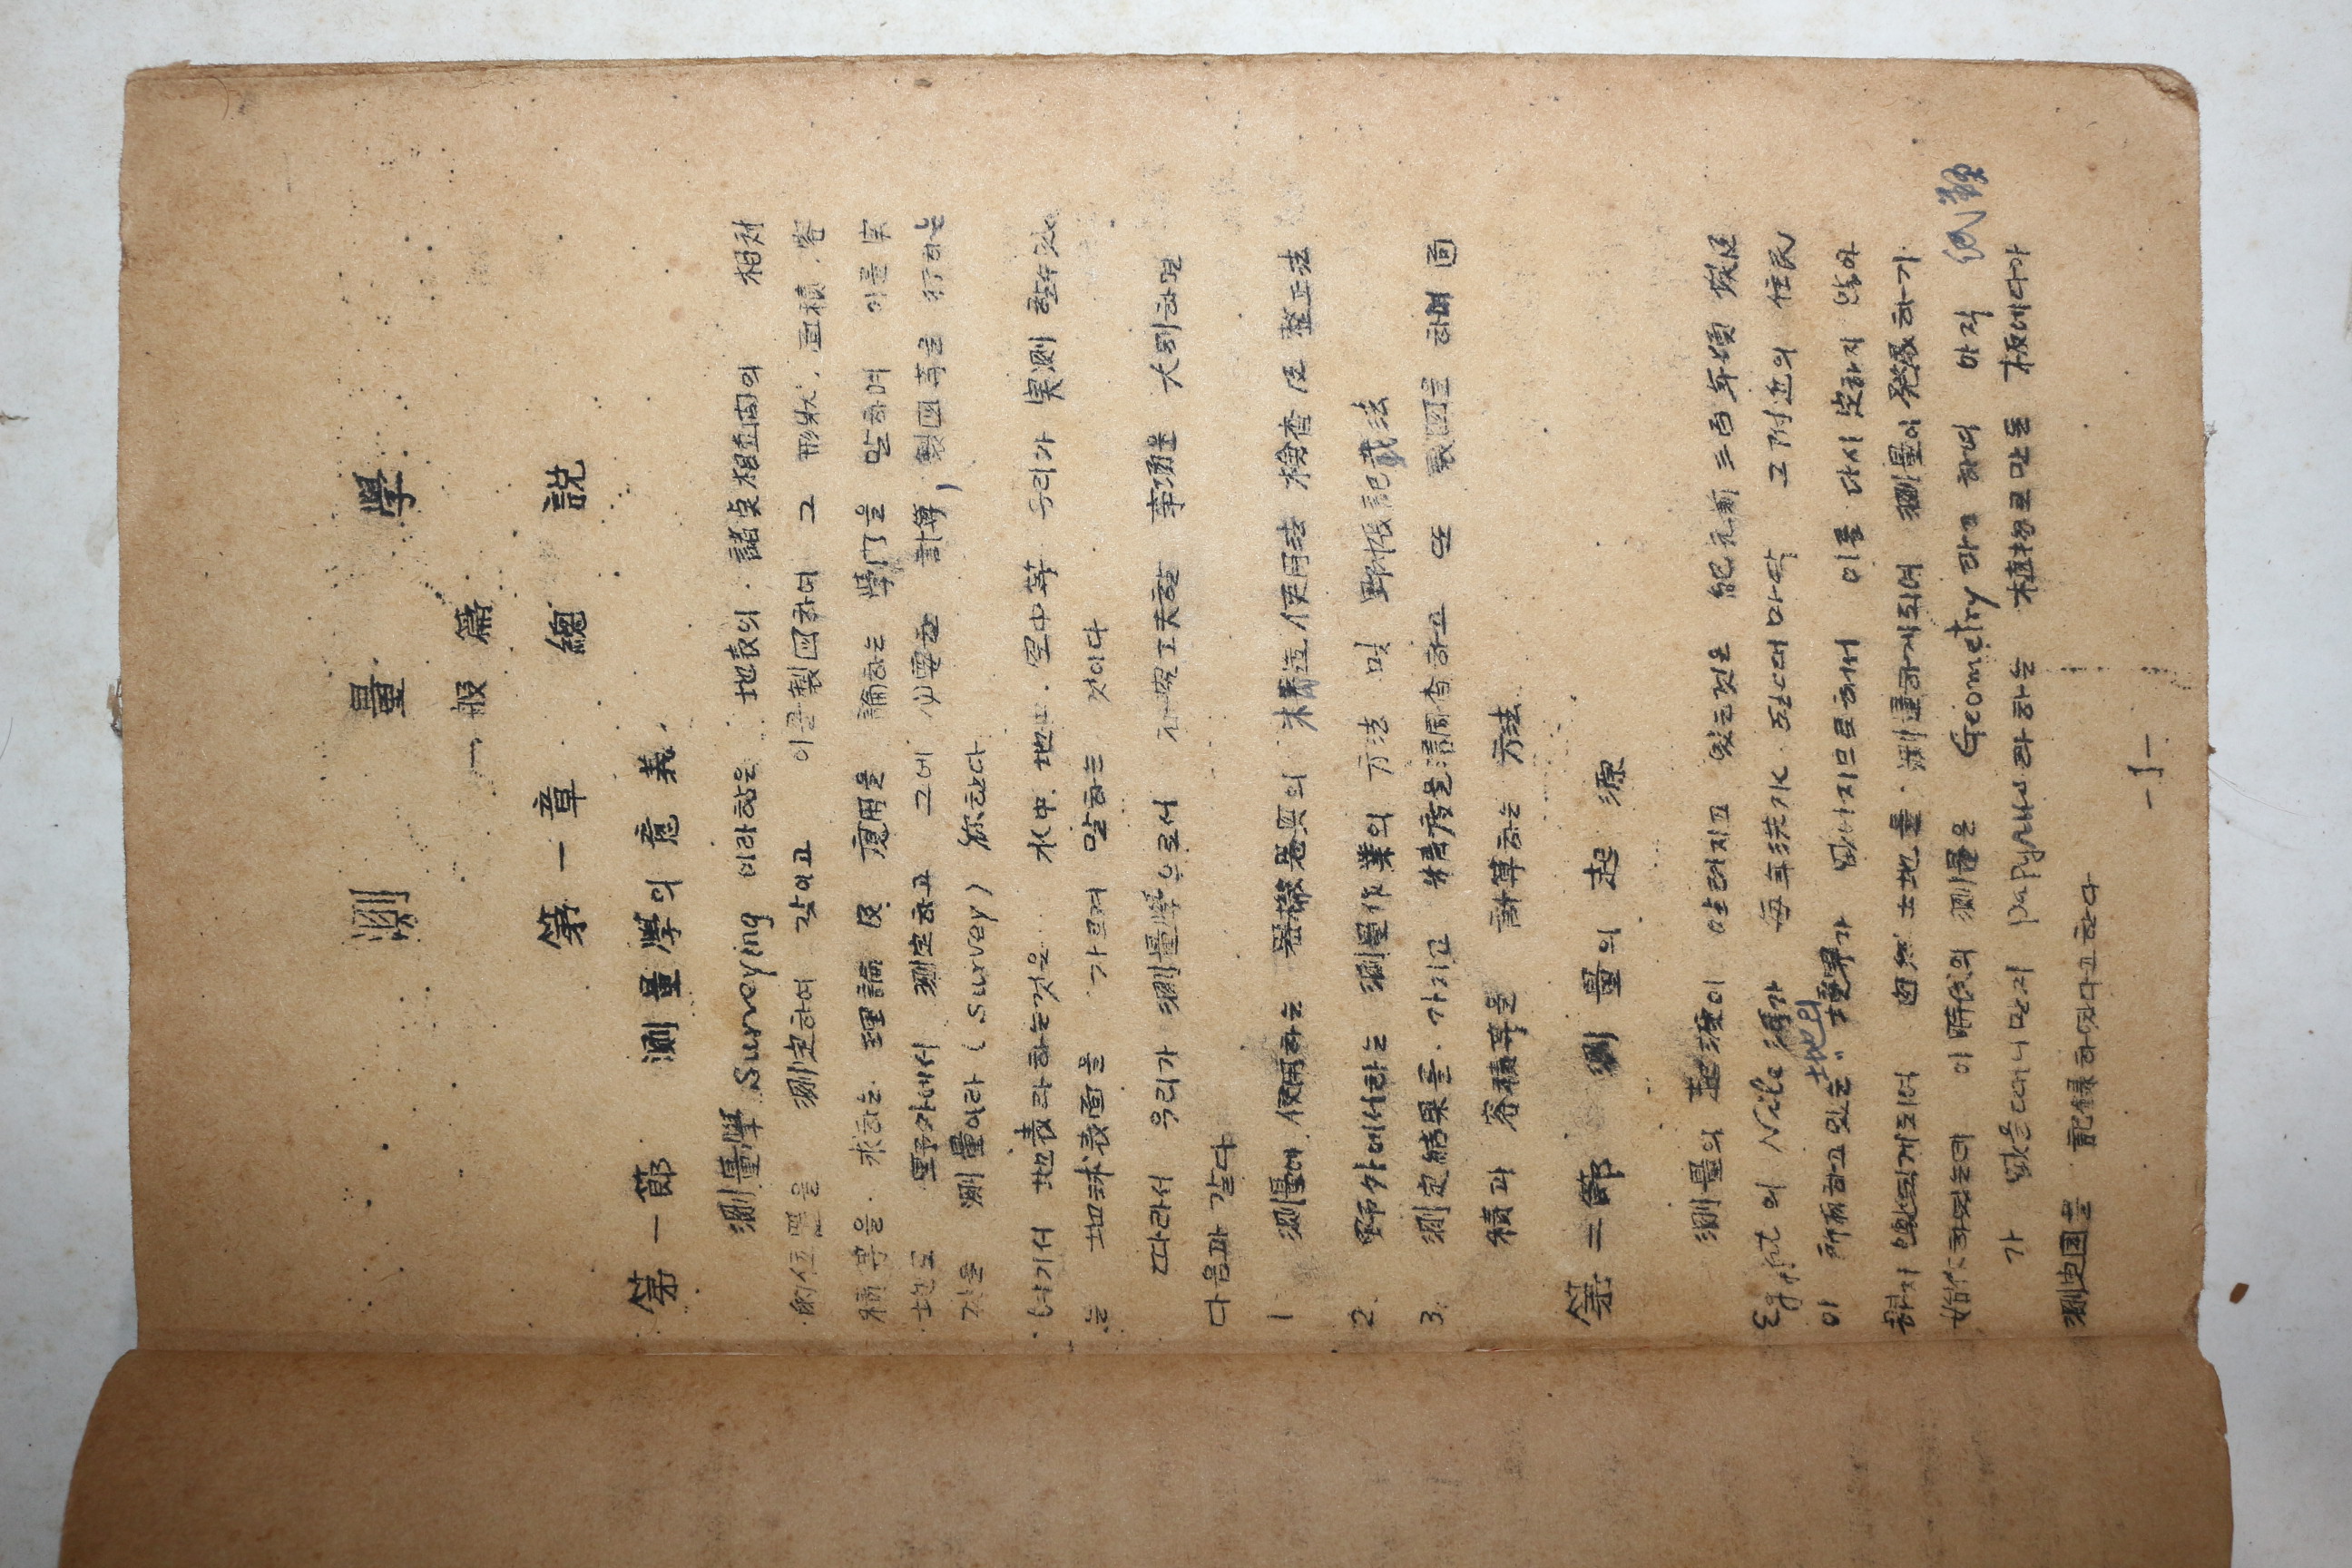 測量學
一般篇
第一章 總說
第一節 測量學의 意義
測量學 Surveying 이라함은 地表의 諸点相互間의 相対
的位置을 測定하여 갖이고 이를 製図하여 그 形狀, 面積, 容
積等을 求하는 理論 及 應用을 論하는 學門을 말하며 이를 実
地로 野外에서 測定하고 그에 必要한 計算, 製図等을 行하는
것을 測量이라 (survey) 称한다
여기서 地表라하는것은 水中, 地中, 空中等 우리가 実測 할수있
는 地球表面을 가르켜 말하는 것이다
따라서 우리가 測量學으로서 工夫할 事項을 大別하면
다음과 같다
1 測量에 使用하는 器具의 構造使用法 檢査及整正法
2. 野外에서하는 測量作業의 方法 및 野帳記載法
3. 測定結果를 가지고 精度를調査하고 또 製図를 하며 面
積과 容積等을 計算하는 方法
第二節 測量의 起源
測量의 起源이 알려지고 있는것은 紀元前 三百年頃 埃及
Egypt의 Nile 河가 每年洪水 될때마닥 그附近의 住民
이 所有하고있는 土地의 境界가 이를 다시 定하지 않아
하지 않되게되여 自然 土地를 測量하게되여 測量이 発展하기
始作하였는데 이 時代의 測量을 Geometry 라고 하며 아직 紙類
가 없을때니만치 papyrus라하는 植物로만든 板에다가
測定図를 記録하였다고한다
-1-